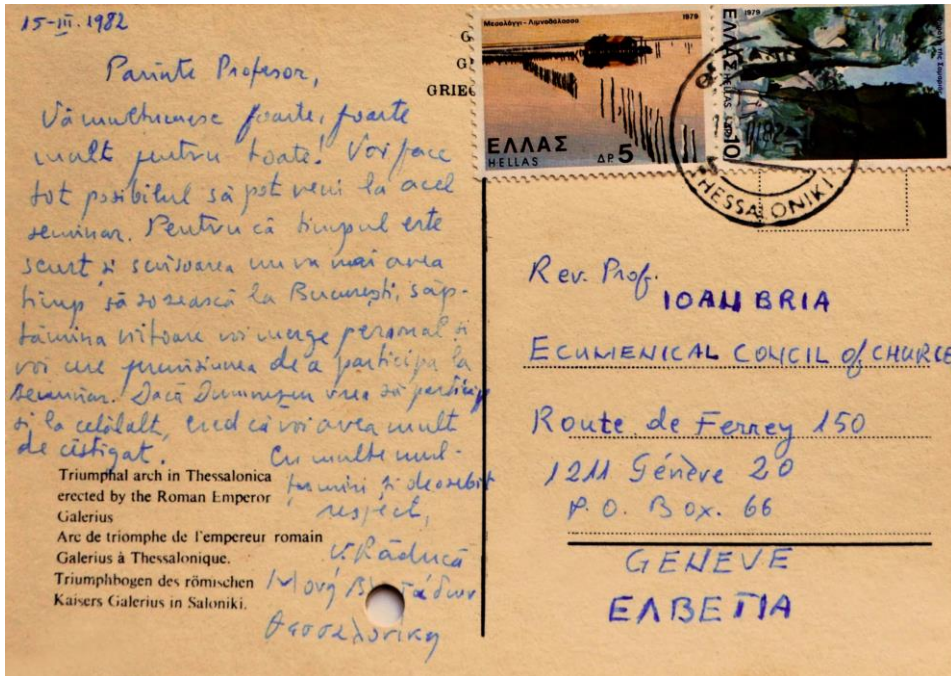 15-III. 1982
Parinte Profesor,
Vă mulțumesc foarte, foarte
mult pentru toate! Voi face
tot posibilul să pot veni la acel
seminar. Pentru că timpul este
scurt și scrisoarea nu va mai avea
timp să sosească la București, săp-
tămîna viitoare voi merge personal și
voi cere permisiunea de a participa la
seminar. Dacă Dumnezeu vrea să particip
și la celălalt, cred că voi avea mult
de cîștigat.
Cu multe mul-
țumiri și deosebit
respect,
V. Răducă
Μονή
Θεσσαλονίκη
Triumphal arch in Thessalonica
erected by the Roman Emperor
Galerius
Arc de triomphe de l'empereur romain
Galerius à Thessalonique.
Triumphbogen des römischen
Kaisers Galerius in Saloniki.
G
G
GRIEC
Μεσολόγγι - Λιμνοθάλασσα 1979
ΕΛΛΑΣ
HELLAS ΔΡ 5
1979
ΕΛΛΑΣ
HELLAS ΔΡ 10
82
THESSALONIKI
Rev. Prof.
IOAN BRIA
ECUMENICAL CONCIL of CHURCE
Route de Ferney 150
1211 Génève 20
P.O. Box. 66
GENEVE
ΕΛΒΕΤΙΑ